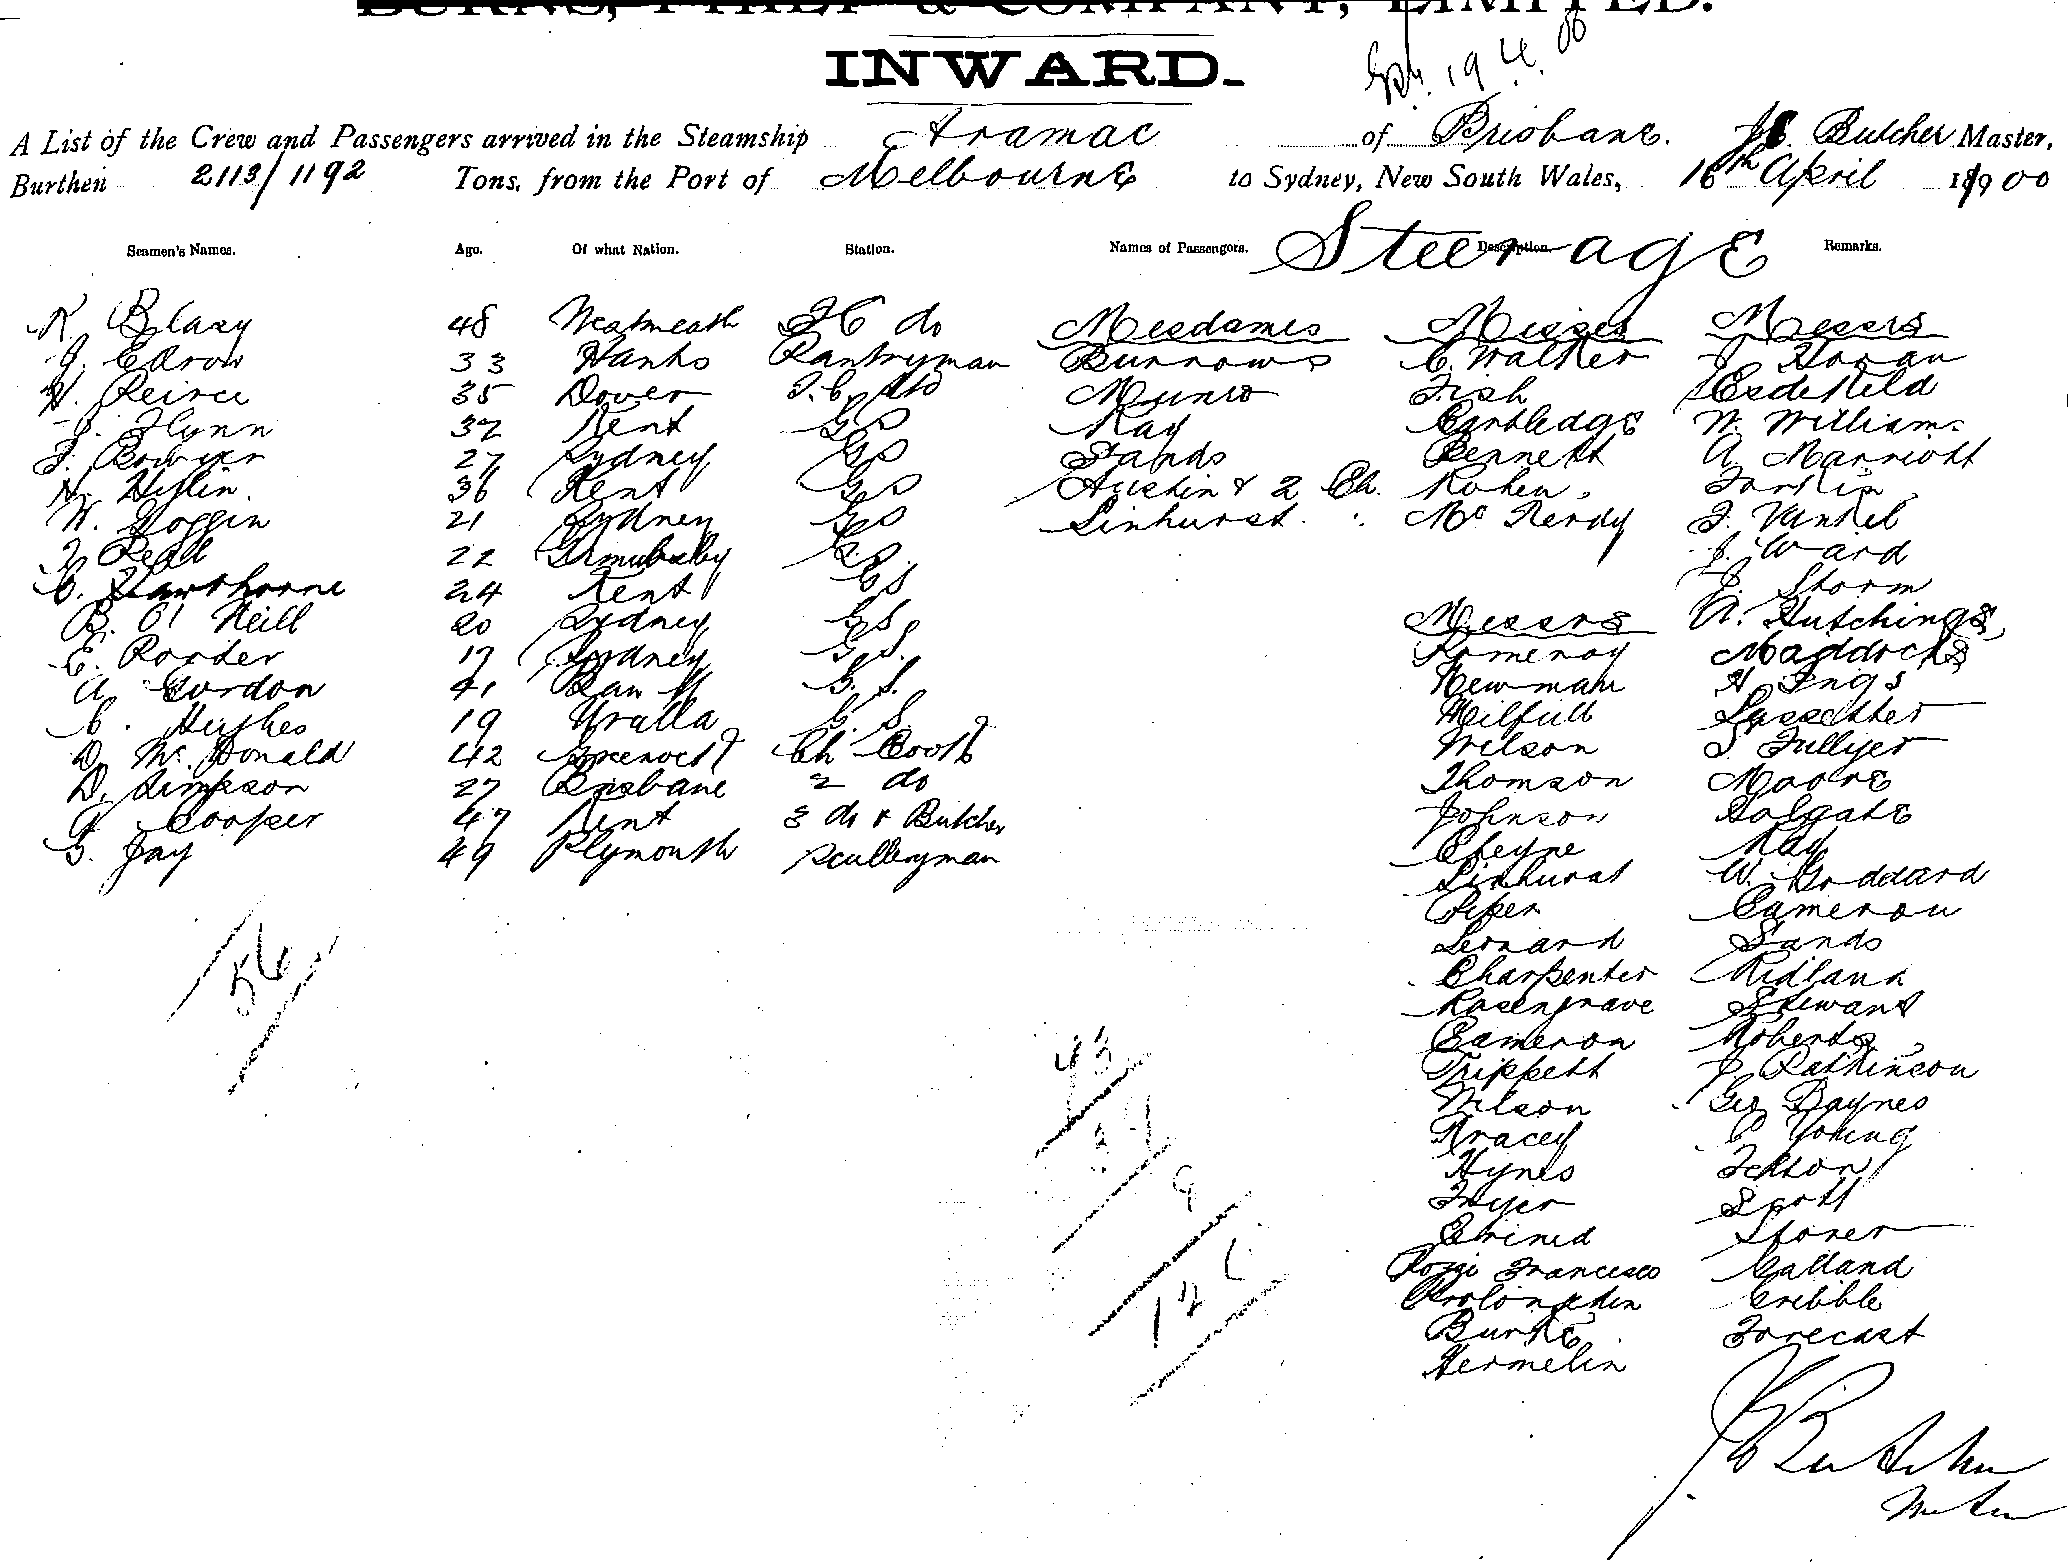 BURNS, PHILP & COMPANY, LIMITED.
INWARD.
19.4.00
A List of the Crew and Passengers arrived in the Steamship Aramac of Brisbane. Butcher Master,
Burthen 2113/1192 Tons, from the Port of Melbourne to Sydney, New South Wales, 16th April 1900
Seamen's Names. Age. Of what Nation. Station. Names of Passengers. Description Remarks.
Steerage
K Blasy 48 Westmeath do Mesdames Misses Messrs
J. Edrow 33 Hants Pantryman Burrows C. Walker J Horan
H. Peirce 35 Dover Munro Fish
J. Flynn 32 Kent GS Ray Cartledge W. Williams
27 Sydney GS Sands Bennett A Marriott
36 Kent GS Austin & 2 Ch. Kohen
W. Goggin 21 Sydney GS Linhurst. McKerdy J.
22 J. Ward
C. Hawthorne 24 Kent GS J. Storm
B. O'Neill 20 Sydney G.S. Messrs A. Hutchings
E. Border 17 Sydney G.S. Pomeroy Maddocks
A. Gordon 21 G.S. Newman H Ings
C. Hughes 19 Uralla G.S. Milfull Lassetter
D. McDonald 42 Greenock Ch Cook Wilson S Fullger
D. Simpson 27 Brisbane 2 do Thomson Moore
Cooper 47 Kent 3 do & Butcher Johnson Holgate
G. Jay 49 Plymouth Sculleryman Cheyne Ray
Linhurst W. Goddard
56 Piper Cameron
Leonard Sands
Charpenter Ridland
Rosengrave Stewart
43 Cameron Roberts
Trippett J. Pattinson
34 Wilson Geo Baynes
Kracey C Young
9 Hynes Felton
Fryer Scott
126 Storer
Pozzi Francesco Galland
Gribble
Burke Forecast
Hermelin
J Butcher
Master